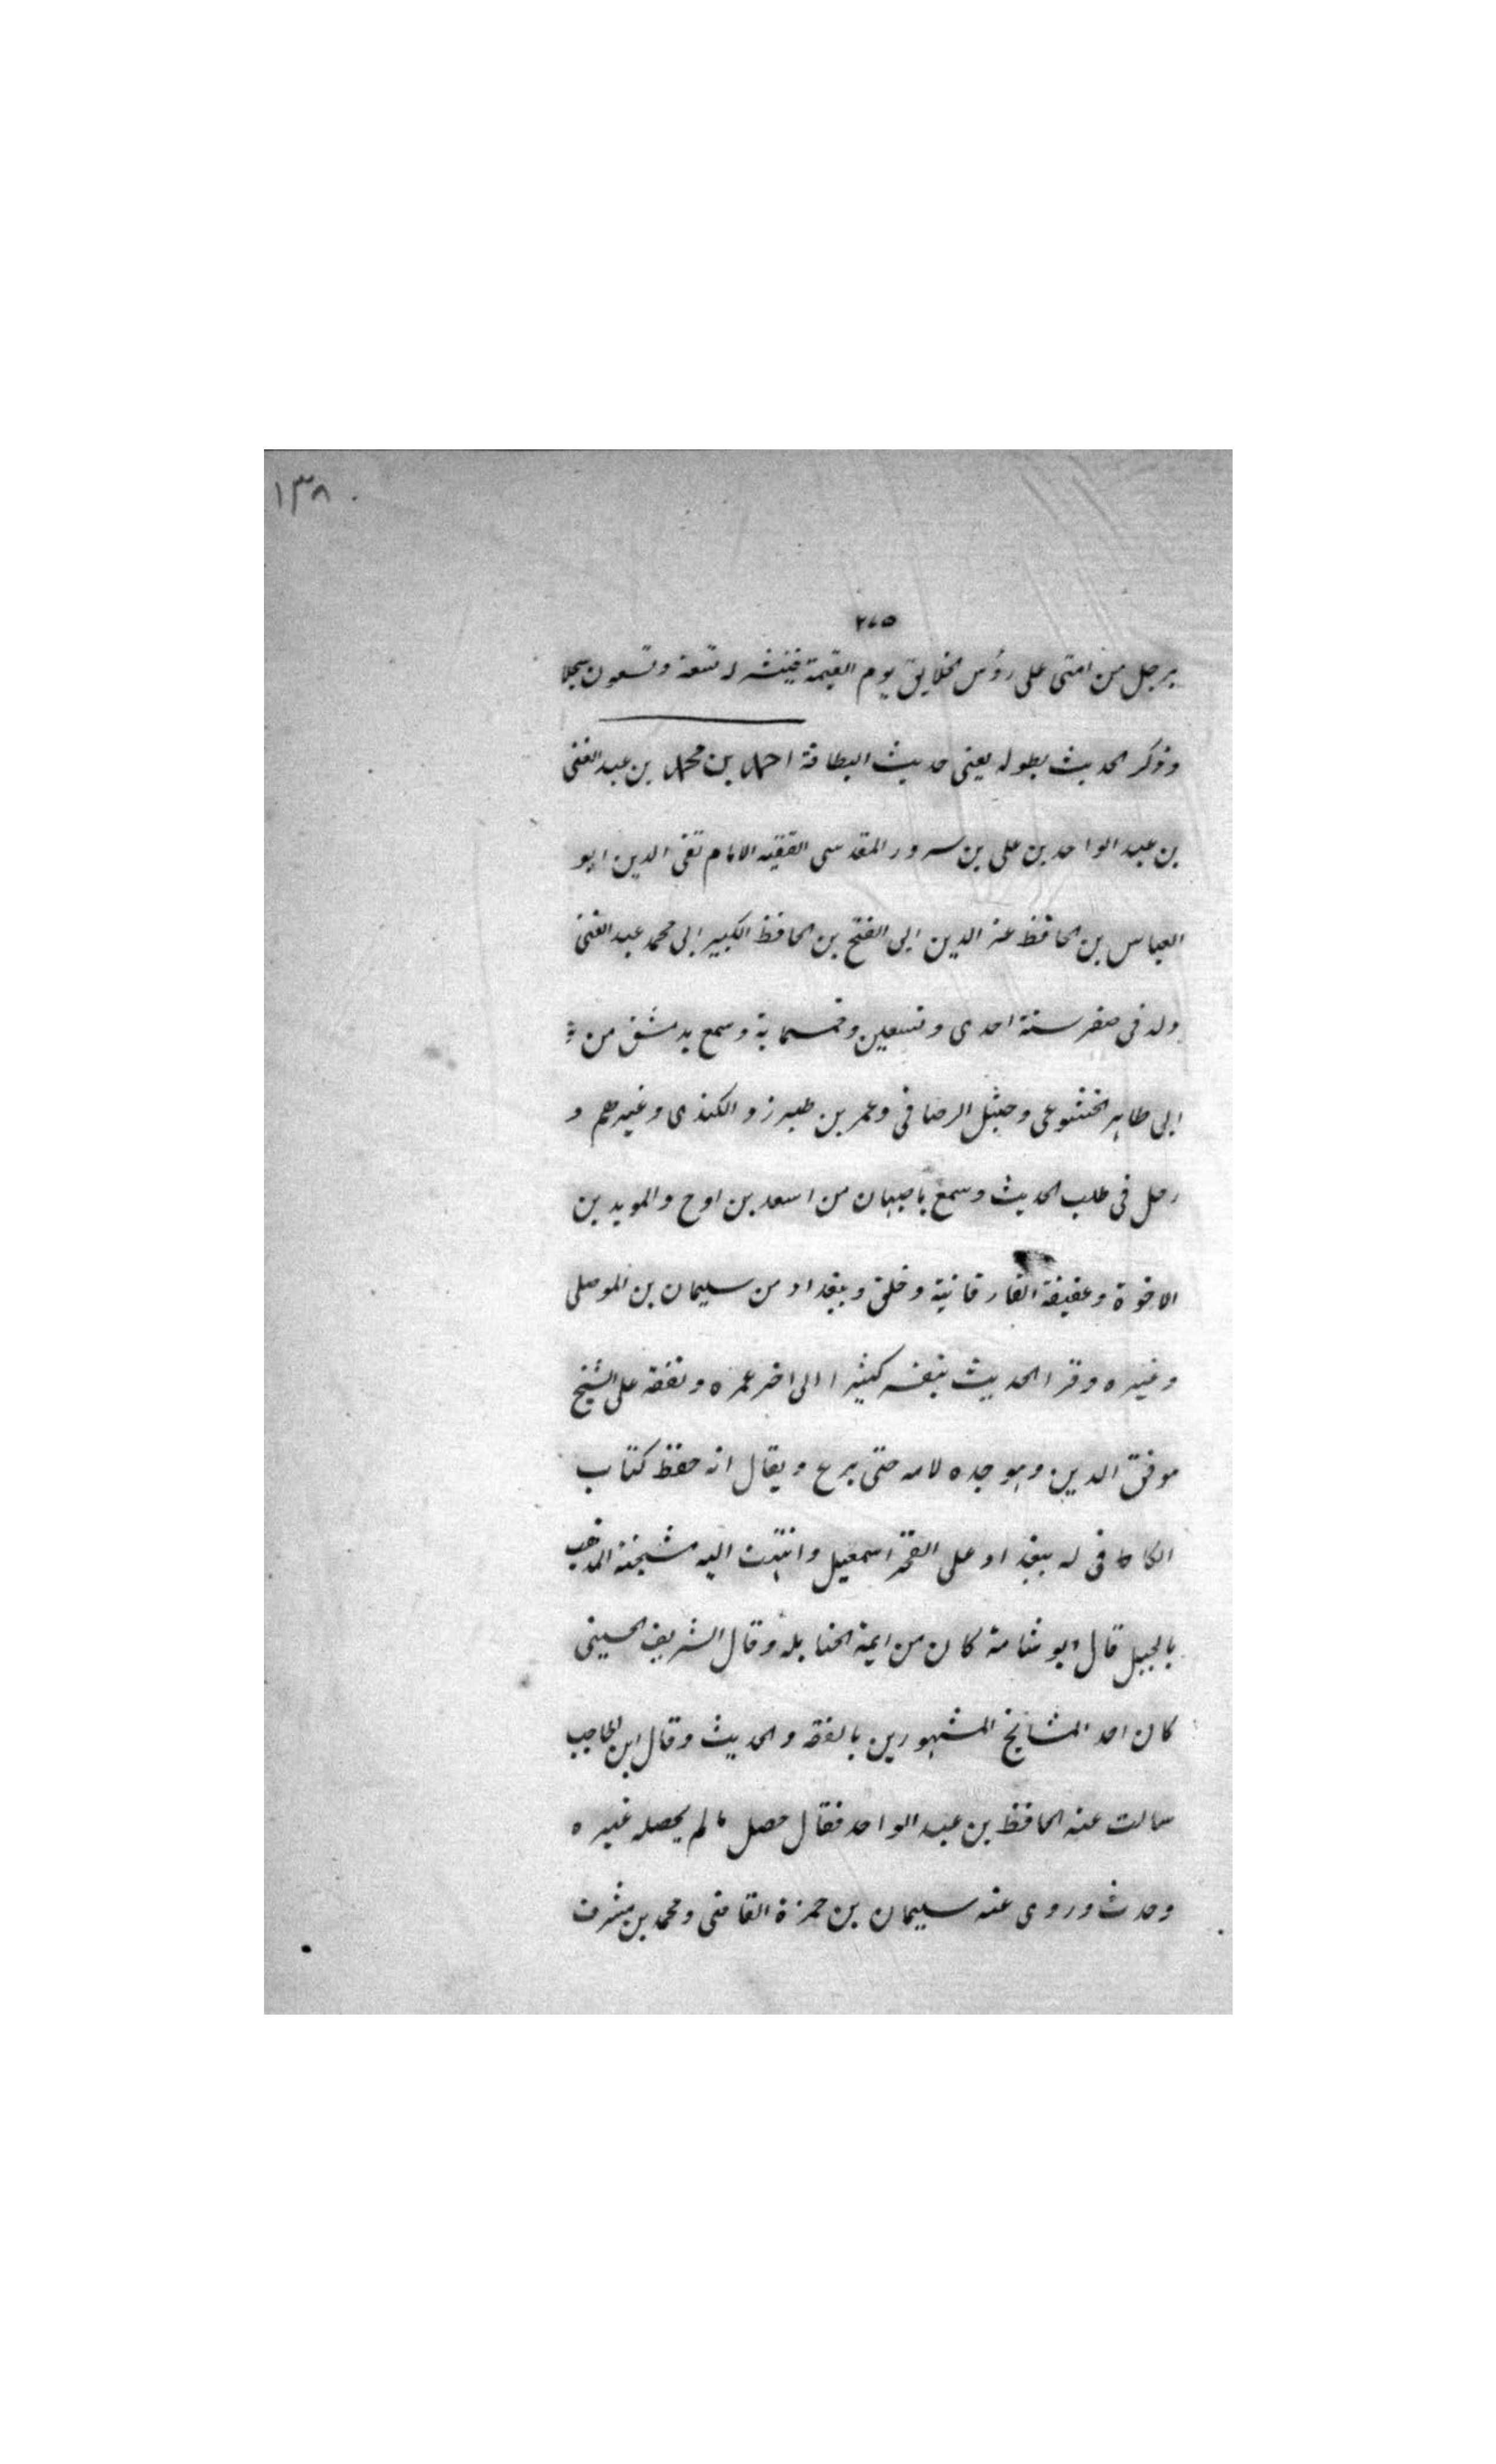 ١٣٨
٢٧٥
برجل من امتى على رؤس الخلايق يوم القيمة فينشر له تسعة وتسعون سجلا
وذكر الحديث بطوله يعنى حديث البطاقة احمد بن محمد بن عبد الغنى
بن عبد الواحد بن على بن سرور المقدسى الفقيه الامام تقى الدين ابو
العباس بن الحافظ عز الدين ابى الفتح بن الحافظ الكبير ابى محمد عبد الغنى
ولد فى صفر سنة احدى وتسعين وخمسماية وسمع بدمشق من
ابى طاهر الخشوعى وحنبل الرصافى وعمر بن طبرزد الكندى وغيرهم و
رحل فى طلب الحديث وسمع باصبهان من اسعد بن اوح والمويد بن
الاخوة وعفيفة الفارفانية وخلق وببغداد من سليمان بن الموصلى
وغيره وقرا الحديث بنفسه كثيرا الى اخر عمره وتفقه على الشيخ
موفق الدين وهو جده لامه حتى برع ويقال انه حفظ كتاب
الكافى له ببغداد على الفخر اسمعيل وانتهت اليه مشيخة المذهب
بالجبل قال ابو شامة كان من ايمة الحنابلة وقال الشريف الحسينى
كان احد المشايخ المشهورين بالفقه والحديث وقال ابن الحاجب
سالت عنه الحافظ بن عبد الواحد فقال حصل مالم يحصله غيره
وحدث وروى عنه سليمان بن حمزة القاضى ومحمد بن مشرف